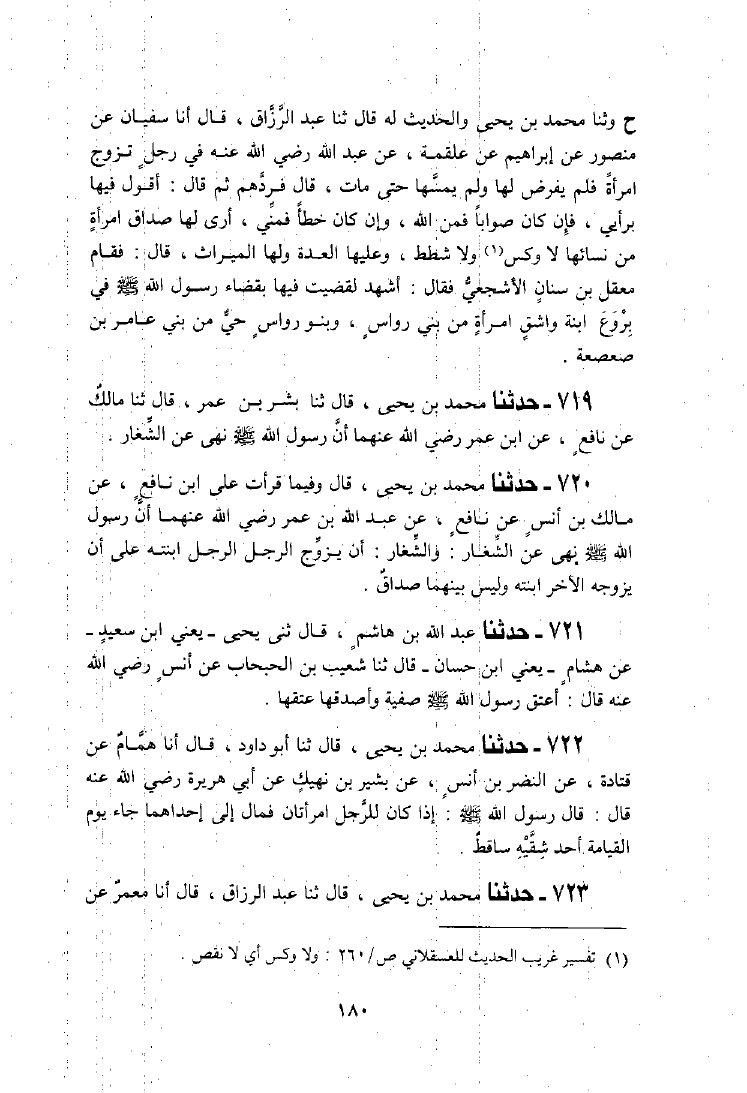 ح وثنا محمد بن يحيى والحديث له قال ثنا عبد الرَّزَّاق ، قـال أنا سفيـان عن
منصور عن إبراهيم عن علقمـة ، عن عبد الله رضي الله عنـه في رجلٍ تـزوج
امرأةً فلم يفرض لها ولم يمسَّها حتى مات ، قال فـردَّهم ثم قال : أقـول فيها
برأيي ، فإن كان صواباً فمن الله ، وإن كان خطأً فمنِّي ، أرى لها صداق امرأةٍ
من نسائها لا وكس(١) ولا شطط ، وعليها العدة ولها الميراث ، قال : فقـام
معقل بن سنانٍ الأشجعيُّ فقال : أشهد لقضيت فيها بقضاء رسـول الله ﷺ في
بِرْوَعَ ابنة واشقٍ امـرأةٍ من بني رواسٍ ، وبنـو رواسٍ حيٌّ من بني عـامـر بن
صعصعة .
٧١٩ ـ حدثنا محمد بن يحيى ، قال ثنا بشر بـن عمر ، قال ثنا مالكٌ
عن نافعٍ ، عن ابن عمر رضي الله عنهما أنَّ رسول الله ﷺ نهى عن الشِّغار .
٧٢٠ ـ حدثنا محمد بن يحيى ، قال وفيما قرأت على ابن نـافعٍ ، عن
مـالك بن أنسٍ عن نـافعٍ ، عن عبـد الله بن عمر رضي الله عنهمـا أنَّ رسول
الله ﷺ نهى عن الشِّغـار : والشِّغار : أن يـزوِّج الرجـل الرجل ابنتـه على أن
يزوجه الآخر ابنته وليس بينهما صداقٌ .
٧٢١ ـ حدثنا عبد الله بن هاشمٍ ، قـال ثنى يحيى ـ يعني ابن سعيدٍ ـ
عن هشامٍ ـ يعني ابن حسان ـ قال ثنا شعيب بن الحبحاب عن أنسٍ رضي الله
عنه قال : أعتق رسول الله ﷺ صفية وأصدقها عتقها .
٧٢٢ ـ حدثنا محمد بن يحيى ، قال ثنا أبو داود ، قـال أنا همَّـامٌ عن
قتادة ، عن النضر بن أنسٍ ، عن بشير بن نهيكٍ عن أبي هريرة رضي الله عنه
قال : قال رسول الله ﷺ : إذا كان للرَّجل امرأتان فمال إلى إحداهما جاء يوم
القيامة أحد شِقَّيْهِ ساقطٌ .
٧٢٣ ـ حدثنا محمد بن يحيى ، قال ثنا عبد الرزاق ، قال أنا معمرٌ عن
(١) تفسير غريب الحديث للعسقلاني ص/٢٦٠ : ولا وكس أي لا نقص .
١٨٠